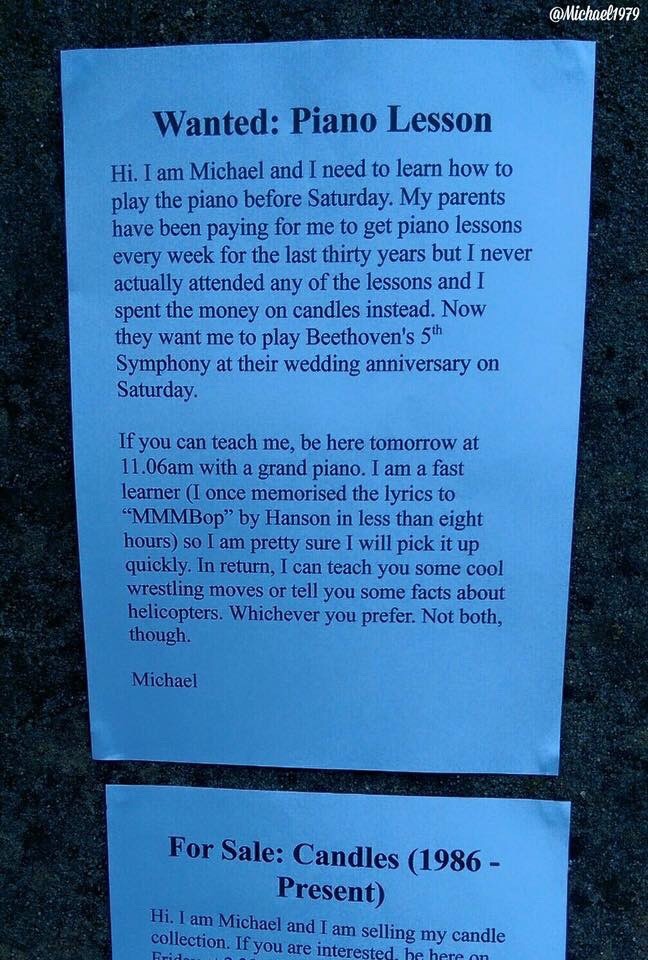 @Michael1979
Wanted: Piano Lesson
Hi. I am Michael and I need to learn how to
play the piano before Saturday. My parents
have been paying for me to get piano lessons
every week for the last thirty years but I never
actually attended any of the lessons and I
spent the money on candles instead. Now
they want me to play Beethoven's 5th
Symphony at their wedding anniversary on
Saturday.
If you can teach me, be here tomorrow at
11.06am with a grand piano. I am a fast
learner (I once memorised the lyrics to
“MMMBop” by Hanson in less than eight
hours) so I am pretty sure I will pick it up
quickly. In return, I can teach you some cool
wrestling moves or tell you some facts about
helicopters. Whichever you prefer. Not both,
though.
Michael
For Sale: Candles (1986 -
Present)
Hi. I am Michael and I am selling my candle
collection. If you are interested, be here on